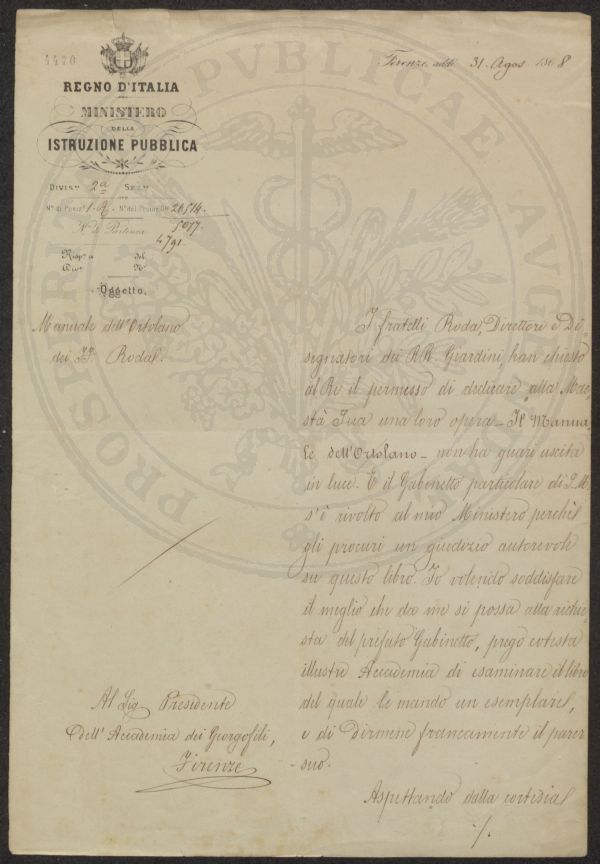 4420
REGNO D'ITALIA
MINISTERO
DELLA
ISTRUZIONE PUBBLICA
Firenze addì 31. Agos 1868
DIVISne 2a SEZne
No di Posizne 1. No del ProtoGle 21514.
No di Partenza 5077
4791
Rispta a del
Divne No
Oggetto.
Manuale dell'Ortolano
dei FF. Roda.
I fratelli Roda, Direttori e Di-
segnatori dei RR. Giardini, han chiesto
al Re il permesso di dedicare alla Mae-
stà Sua una loro opera - Il Manua-
le dell'Ortolano - non ha guari uscita
in luce. E il Gabinetto particolare di S. M.
s'è rivolto al mio Ministero perchè
gli procuri un giudizio autorevole
su questo libro. Io volendo soddisfare
il meglio che da me si possa alla richie-
sta del prefato Gabinetto, prego cotesta
illustre Accademia di esaminare il libro
del quale le mando un esemplare,
e di dirmene francamente il parer
suo.
Aspettando dalla cortesia
./.
Al Sig Presidente
dell'Accademia dei Georgofili,
Firenze
PROSPERITATI PUBLICAE AUGENDAE